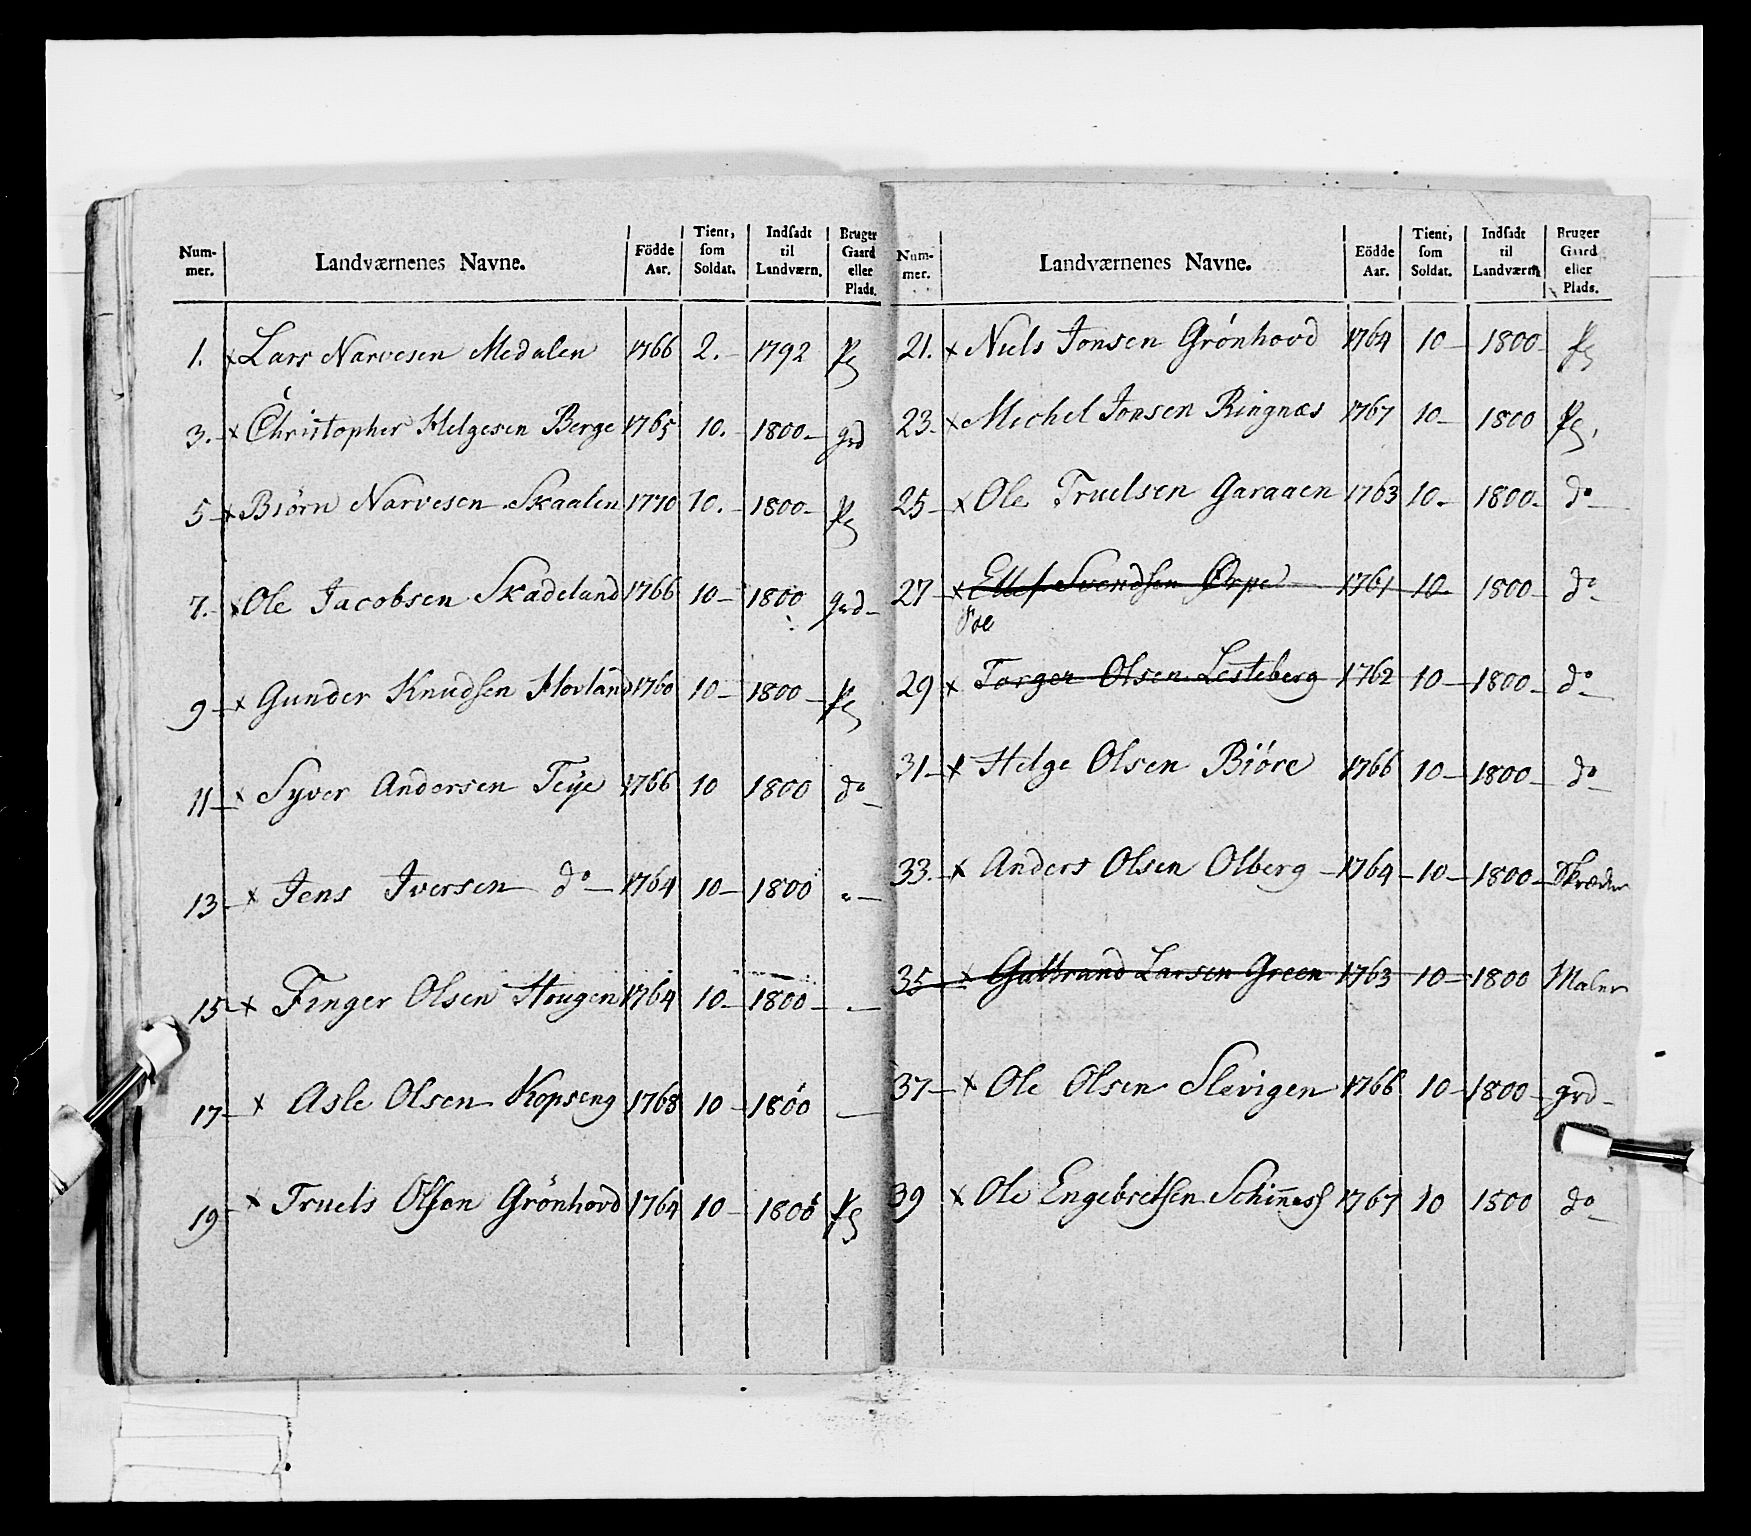 Num-mer. Landværnenes Navne. Födde Aar. Tient, som Soldat. Indsadt til Landværn. Bruger Gaard eller Plads.
1. x Lars Narvesen Medalen 1766 2. - 1792 Pl
3. - x Christopher Helgesen Berge 1765 10. - 1800 - grd
5 - x Biørn Narvesen Skaalen 1770 10. - 1800 - Pl
7. - x Ole Jacobsen Skadeland 1766 10 - 1800 grd -
9 - x Gunder Knudsen Hovland 1760 10 - 1800 - Pl
11 - x Syver Andersen Teÿe 1766 10 1800 do -
13 - x Jens Iversen do - 1764 10 - 1800 " -
15 - x Finger Olsen Hougen 1764 10 - 1800 - -
17 - x Asle Olsen Kopseng 1768 10 - 1800 -
19 - x Truels Olson Grönhovd 1764 10 - 1800 Pl
Num-mer. Landværnenes Navne. Eödde Aar. Tient, som Soldat. Indsadt til Landværn. Bruger Gaard eller Plads.
21. x Niels Jonsen Grónhovd 1764 10 - 1800 - Pl
23. - x Michel Jonsen Ringnæs 1767 10 - 1800 Pl,
25 - x Ole Truelsen Garaaen 1763 10 - 1800 - do -
27 - x Ellef Svendsen Ørpe 1761 10 - 1800 - do -
29 x Torger Olsen Lesteberg 1762 10 - 1800 - do -
31 - x Helge Olsen Bióre 1766 10 - 1800 - do -
33. - x Anders Olsen Olberg - 1764 - 10 - 1800 - Skræder
35 - x Gulbrand Larsen Green 1763 10 - 1800 Maler
37 - x Ole Olsen Slevigen 1766 10 - 1800 - grd -
39 x Ole Engebretsen Schinness 1767 10 1800 do -